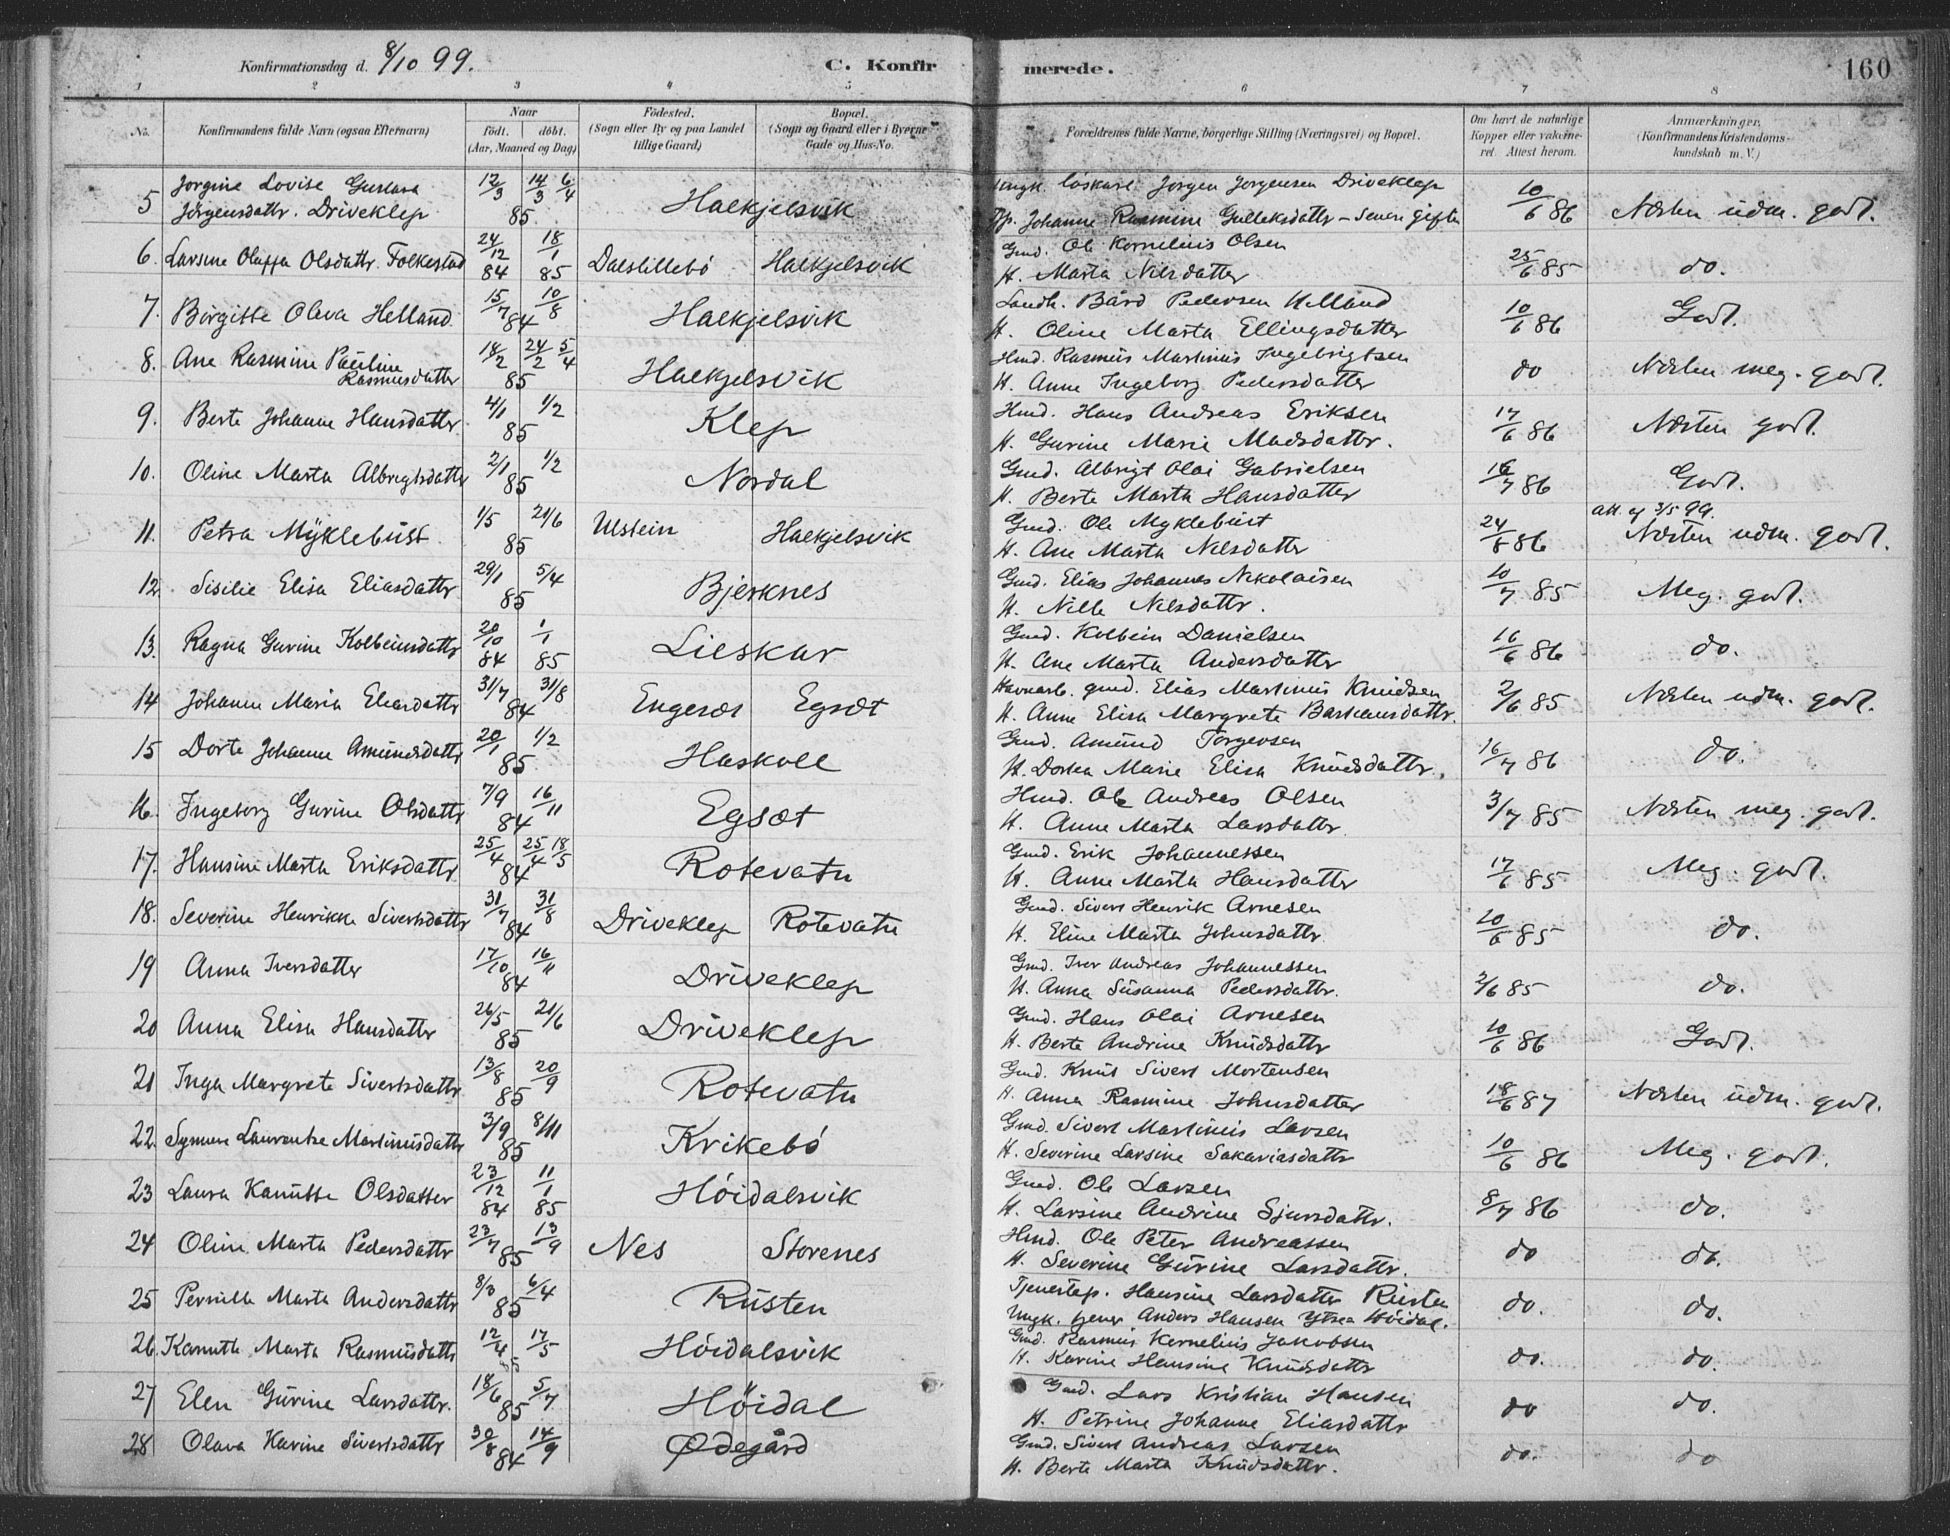 Konfirmationsdag d. 8/10 99. C. Konfirmerede. 160
1 2 3 4 5 6 7 8
No. Konfirmandens fulde Navn (ogsaa Efternavn) Naar födt. döbt. (Aar, Maaned og Dag) Födested. (Sogn eller By og paa Landet tillige Gaard) Bopæl. (Sogn og Gaard eller i Byerne Gade og Hus-No. Forældrenes fulde Navne, borgerlige Stilling (Næringsvei) og Bopæl. Om havt de naturlige Kopper eller vakcineret. Attest herom. Anmærkninger, (Konfirmandens Kristendomskundskab m. V.)
5 Jorgine Lovise Gustava Jörgensdattr. Driveklep 12/3 14/3 6/4 85 Halkjelsvik Ungk. löskarl Jörgen Jörgensen Driveklep Tp. Johanne Rasmine Gulleksdattr – Senere giften 10/6 86 Næsten udm. godt.
6. Larsine Oluffa Olsdattr. Folkestad 24/12 84 18/1 85 Dalslillebö Halkjelsvik Gmd. Ole Kornelius Olsen H. Marta Nilsdatter 25/6 85 do.
7. Birgitte Oleva Helland 15/7 10/8 84 Halkjelsvik Landh. Bård Pedersen Helland H. Oline Marta Ellingsdatter 10/6 86 Godt.
8. Ane Rasmine Pauline Rasmusdatter 18/2 24/2 5/4 85 Halkjelsvik Hmd. Rasmus Martinus Ingebrigtsen H. Anne Ingeborg Pedersdatter do Næsten meg. godt.
9. Berte Johanne Hansdatter 4/1 1/2 85 Klep Hmd. Hans Andreas Eriksen H. Gurine Marie Madsdattr. 17/6 86 Næsten godt.
10. Oline Marta Albrigtsdatter 2/1 1/2 85 Nordal Gmd. Albrigt Olai Gabrielsen H. Berte Marta Hansdatter 16/7 86 Godt.
11. Petra Myklebust 1/5 21/6 85 Ulstein Halkjelsvik Gmd. Ole Myklebust H. Ane Marta Nilsdatter 24/8 86 att. af 3/5 99. Næsten udm. godt.
12. Sisilie Elisa Eliasdattr 29/1 5/4 85 Bjerknes Gmd. Elias Johannes Nikolaisen H. Nille Nilsdattr. 10/7 85 Meg. godt.
13. Ragna Gurine Kolbeinsdattr 20/10 84 1/1 85 Lieskar Gmd. Kolbein Danielsen H. Ane Marta Andersdattr 16/6 86 do.
14 Johanne Maria Eliasdattr 31/7 31/8 84 Engeset Egsæt Havnarb. gmd. Elias Martinus Knudsen H. Anne Elisa Margrete Bastiansdattr. 2/6 85 Næsten udm. godt.
15 Dorte Johanne Amundsdattr 20/1 1/2 85 Haskoll Gmd. Amund Torgersen H. Dortea Marie Elisa Knudsdattr. 16/7 86 do.
16. Ingeborg Gurine Olsdattr 7/9 16/11 84 Egsæt Hmd. Ole Andreas Olsen H. Anne Marta Larsdattr. 3/7 85 Næsten meg. godt.
17. Hansine Marta Eriksdattr 25/4 25/4 18/5 84 Rotevatn Gmd. Erik Johannessen H. Anne Marta Hansdatter 17/6 85 Meg. godt.
18. Severine Henrikke Sivertsdattr 31/7 31/8 84 Driveklep Rotevatn Gmd. Sivert Henrik Arnesen H. Eline Marta Johnsdattr. 20/6 85 do.
19 Anna Iversdatter 17/10 16/11 84 Driveklep Gmd. Iver Andreas Johannessen H. Anna Susanna Pedersdattr. 2/6 85 do.
20 Anna Elisa Hansdatter 26/5 21/6 85 Driveklep Gmd. Hans Olai Arnesen H. Berte Andrine Knudsdattr 10/6 86 Godt.
21 Inga Margrete Sivertsdattr 13/8 20/9 85 Rotevatn Gmd. Knut Sivert Mortensen H. Anna Rasmine Johnsdatter 18/6 87 Næsten udm. godt.
22. Synnøve Laurentze Martinusdattr 3/9 8/11 85 Krikebö Gmd. Sivert Martinus Larsen H. Severine Larsine Sakariasdattr 10/6 86 Meg. godt.
23 Laura Kanutte Olsdatter 23/12 84 11/1 85 Höidalsvik Gmd. Ole Larsen H. Larsine Andrine Sjursdattr. 8/7 86 do.
24 Oline Marta Pedersdattr 23/7 13/9 85 Nes Storenes Hmd. Ole Peter Andreassen H. Severine Gurine Larsdattr. do do.
25 Pernille Marta Andersdattr 8/3 6/4 85 Rusten Tjenestep. Hansine Larsdatter Rusten Ungk. tjener Anders Hansen Ytrea Höidal. do. do.
26. Kanutte Marta Rasmusdattr 12/4 17/5 85 Höidalsvik Gmd. Rasmus Kornelius Jakobsen H. Karine Hansine Knudsdattr do. do.
27 Elen Gurine Larsdattr. 18/6 5/7 85 Höidal Gmd. Lars Kristian Hansen H. Petrine Johanne Eliasdattr do do.
28 Olava Karine Sivertsdattr 30/8 14/9 84 Ødegård Gmd. Sivert Andreas Larsen H. Berte Marta Knudsdattr. do. do